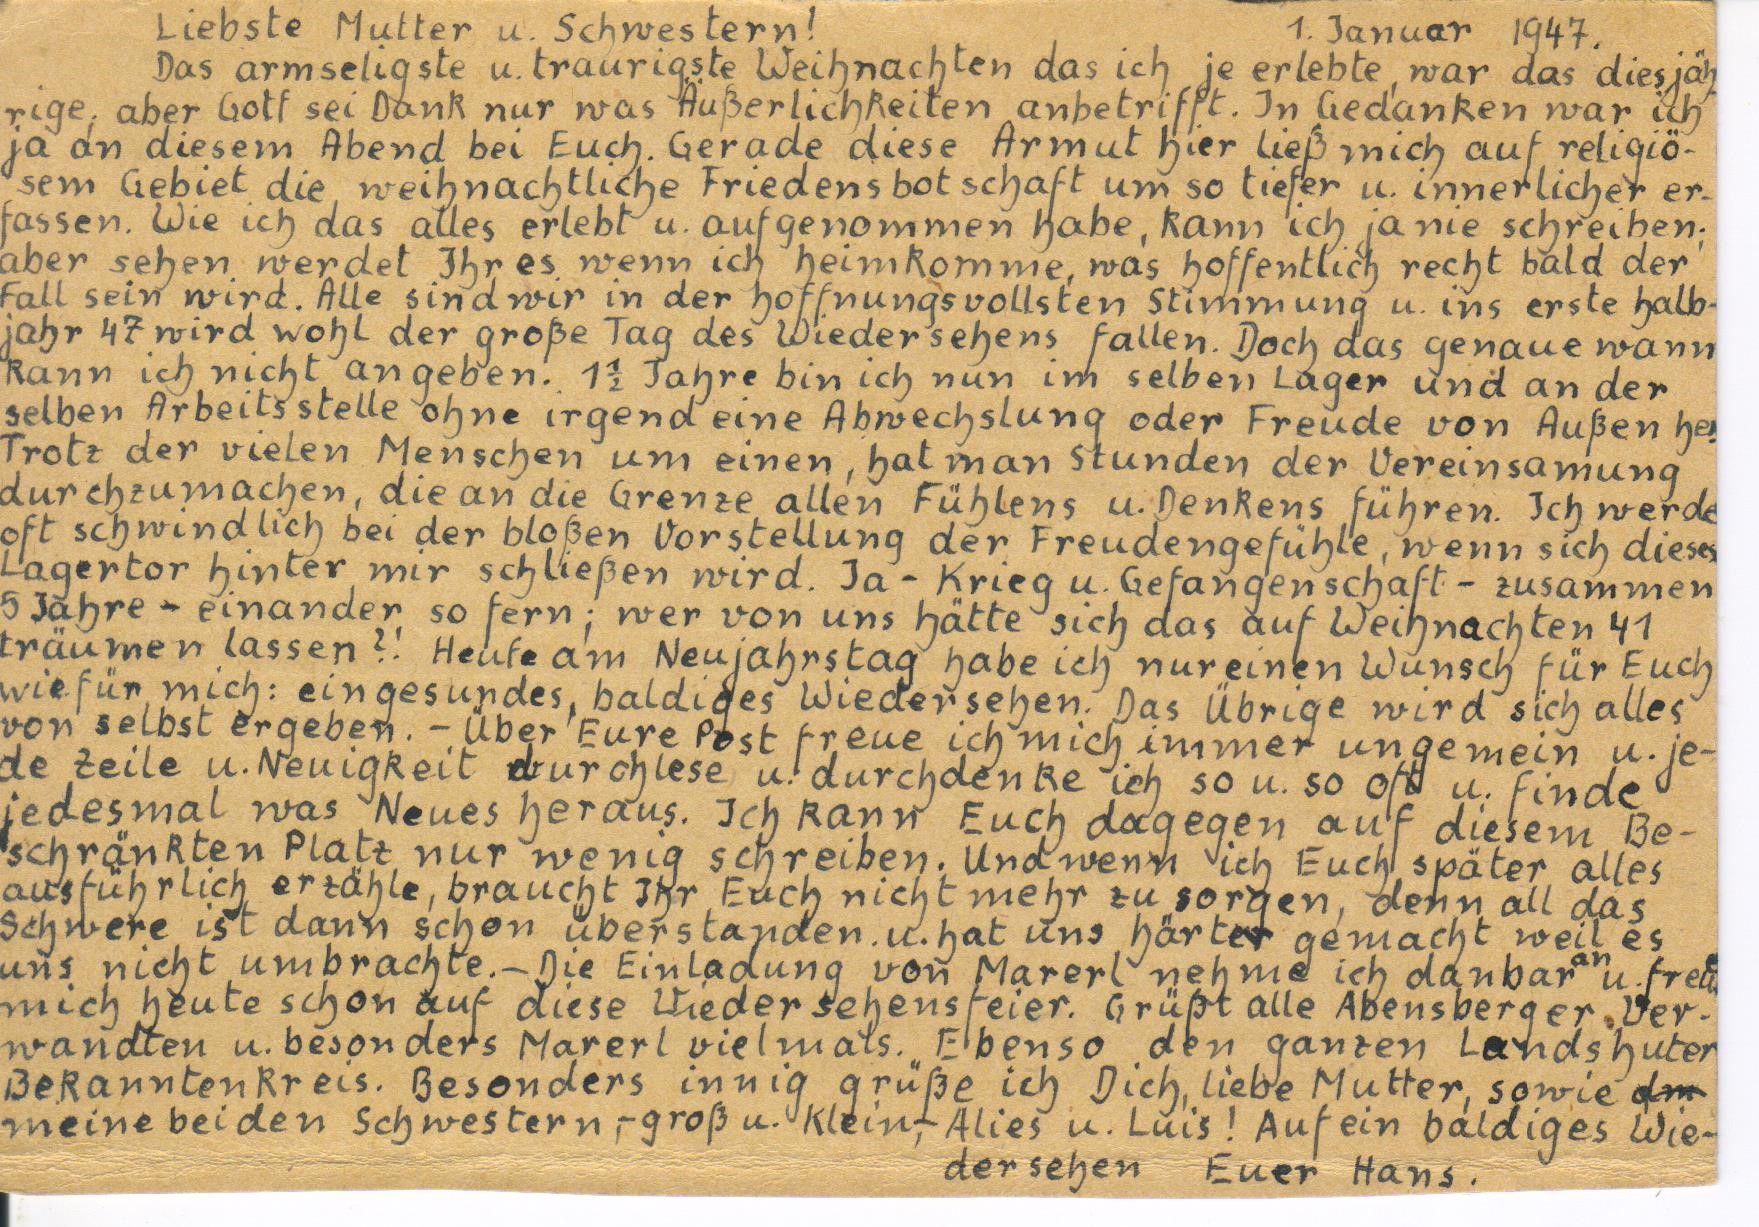 Liebste Mutter u. Schwestern! 1. Januar 1947.
Das armseligste u. traurigste Weihnachten das ich je erlebte, war das diesjäh
rige, aber Gott sei Dank nur was Äußerlichkeiten anbetrifft. In Gedanken war ich
ja an diesem Abend bei Euch. Gerade diese Armut hier ließ mich auf religiö-
sem Gebiet die weihnachtliche Friedensbotschaft um so tiefer u. innerlicher er-
fassen. Wie ich das alles erlebt u. aufgenommen habe, kann ich ja nie schreiben;
aber sehen werdet Ihr es wenn ich heimkomme, was hoffentlich recht bald der
Fall sein wird. Alle sind wir in der hoffnungsvollsten Stimmung u. ins erste halb-
jahr 47 wird wohl der große Tag des Wiedersehens fallen. Doch das genaue wann
kann ich nicht angeben. 1½ Jahre bin ich nun im selben Lager und an der
selben Arbeitsstelle ohne irgend eine Abwechslung oder Freude von Außen her.
Trotz der vielen Menschen um einen, hat man Stunden der Vereinsamung
durchzumachen, die an die Grenze allen Fühlens u. Denkens führen. Ich werde
oft schwindlich bei der bloßen Vorstellung der Freudengefühle, wenn sich dieses
Lagertor hinter mir schließen wird. Ja - Krieg u. Gefangenschaft - zusammen
5 Jahre - einander so fern; wer von uns hätte sich das auf Weihnachten 41
träumen lassen?! Heute am Neujahrstag habe ich nur einen Wunsch für Euch
wie für mich: ein gesundes, baldiges Wiedersehen. Das Übrige wird sich alles
von selbst ergeben. - Über Eure Post freue ich mich immer ungemein u. je-
de Zeile u. Neuigkeit durchlese u. durchdenke ich so u. so oft u. finde
jedesmal was Neues heraus. Ich kann Euch dagegen auf diesem Be-
schränkten Platz nur wenig schreiben. Und wenn ich Euch später alles
ausführlich erzähle, braucht Ihr Euch nicht mehr zu sorgen, denn all das
Schwere ist dann schon überstanden u. hat uns härter gemacht weil es
uns nicht umbrachte. - Die Einladung von Marerl nehme ich danbar an u. freue
mich heute schon auf diese Wiedersehensfeier. Grüßt alle Abensberger Ver-
wandten u. besonders Marerl vielmals. Ebenso den ganzen Landshuter
Bekanntenkreis. Besonders innig grüße ich Dich, liebe Mutter, sowie
meine beiden Schwestern, - groß u. Klein, - Alies u. Luis! Auf ein baldiges Wie-
dersehen Euer Hans.